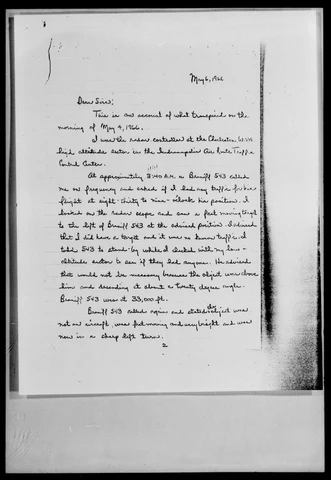 May 6, 1966
Dear Sirs;
This is an account of what transpired on the
morning of May 4, 1966.
I was the radar controller at the Charleston, W. VA
high altitude sector in the Indianapolis Air Route Traffic
Control Center.
At approximately 3:40 A.M. a Braniff 543 called
me on frequency and asked if I had any traffic for his
flight at eight-thirty to nine-o'clock his position. I
looked on the radar scope and saw a fast moving target
to the left of Braniff 543 at the advised position. I advised
that I did have a target and it was no known traffic. I
told 543 to stand-by while I checked with my low-
altitude sector to see if they had anyone. He advised
that would not be necessary because the object was above
him and descending at about a twenty degree angle.
Braniff 543 was at 33,000 ft.
Braniff 543 called again and stated the object was
not an aircraft, was fast moving and very bright and was
now in a sharp left turn.
2